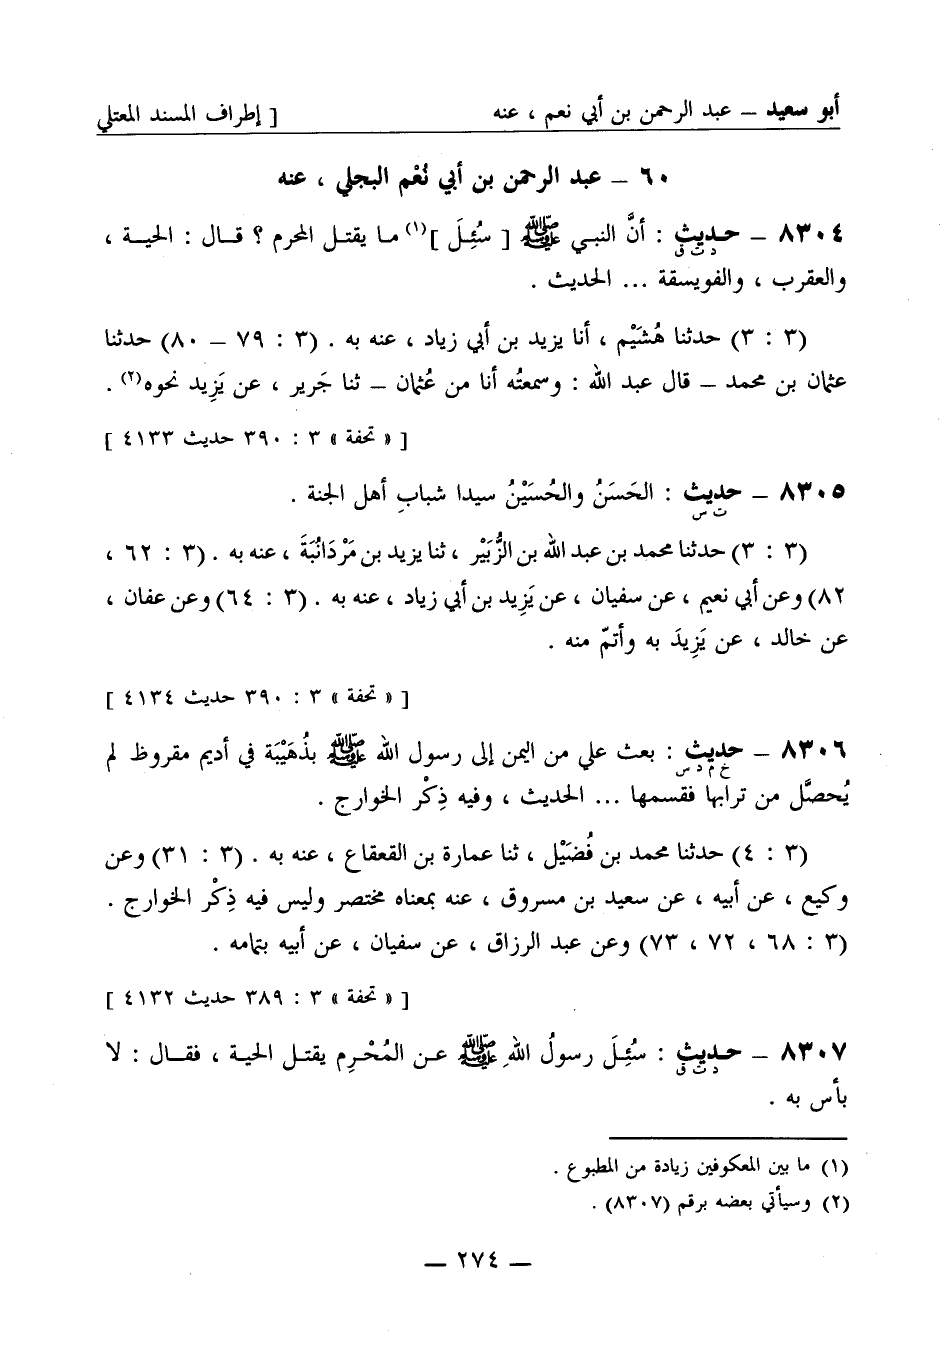 أبو سعيد – عبد الرحمن بن أبي نعم ، عنه [ إطراف المسند المعتلي
٦٠ – عبد الرحمن بن أبي نُعْم البجلي ، عنه
٨٣٠٤ – حـديث : أنَّ النبـي ﷺ [ سُئِـلَ ](١) مـا يقتـل المحرم ؟ قـال : الحيـة ،
د ت ق
والعقرب ، والفويسقة ... الحديث .
(٣ : ٣) حدثنا هُشَيْم ، أنا يزيد بن أبي زياد ، عنه به . (٣ : ٧٩ – ٨٠) حدثنا
عثمان بن محمد – قال عبد الله : وسمعتُه أنا من عُثمان – ثنا جَرير ، عن يَزِيد نحوه(٢) .
[ « تحفة » ٣ : ٣٩٠ حديث ٤١٣٣ ]
٨٣٠٥ – حديث : الحَسَنُ والحُسَيْنُ سيدا شبابِ أهل الجنة .
ت س
(٣ : ٣) حدثنا محمد بن عبد الله بن الزُّبَيْر ، ثنا يزيد بن مَرْدَانُبَةَ ، عنه به . (٣ : ٦٢ ،
٨٢) وعن أبي نعيم ، عن سفيان ، عن يَزِيد بن أبي زياد ، عنه به . (٣ : ٦٤) وعن عفان ،
عن خالد ، عن يَزِيدَ به وأتمّ منه .
[ « تحفة » ٣ : ٣٩٠ حديث ٤١٣٤ ]
٨٣٠٦ – حديث : بعث علي من اليمن إلى رسول الله ﷺ بذُهَيْبَة في أديم مقروظ لم
خ م د س
يُحصَّل من ترابها فقسمها ... الحديث ، وفيه ذِكْر الخوارج .
(٣ : ٤) حدثنا محمد بن فُضَيْل ، ثنا عمارة بن القعقاع ، عنه به . (٣ : ٣١) وعن
وكيع ، عن أبيه ، عن سعيد بن مسروق ، عنه بمعناه مختصر وليس فيه ذِكْر الخوارج .
(٣ : ٦٨ ، ٧٢ ، ٧٣) وعن عبد الرزاق ، عن سفيان ، عن أبيه بتمامه .
[ « تحفة » ٣ : ٣٨٩ حديث ٤١٣٢ ]
٨٣٠٧ – حـديث : سُئِـلَ رسولُ اللهِ ﷺ عـن المُحْـرِم يقتـل الحيـة ، فقـال : لا
د ت ق
بأس به .
(١) ما بين المعكوفين زيادة من المطبوع .
(٢) وسيأتي بعضه برقم (٨٣٠٧) .
– ٢٧٤ –